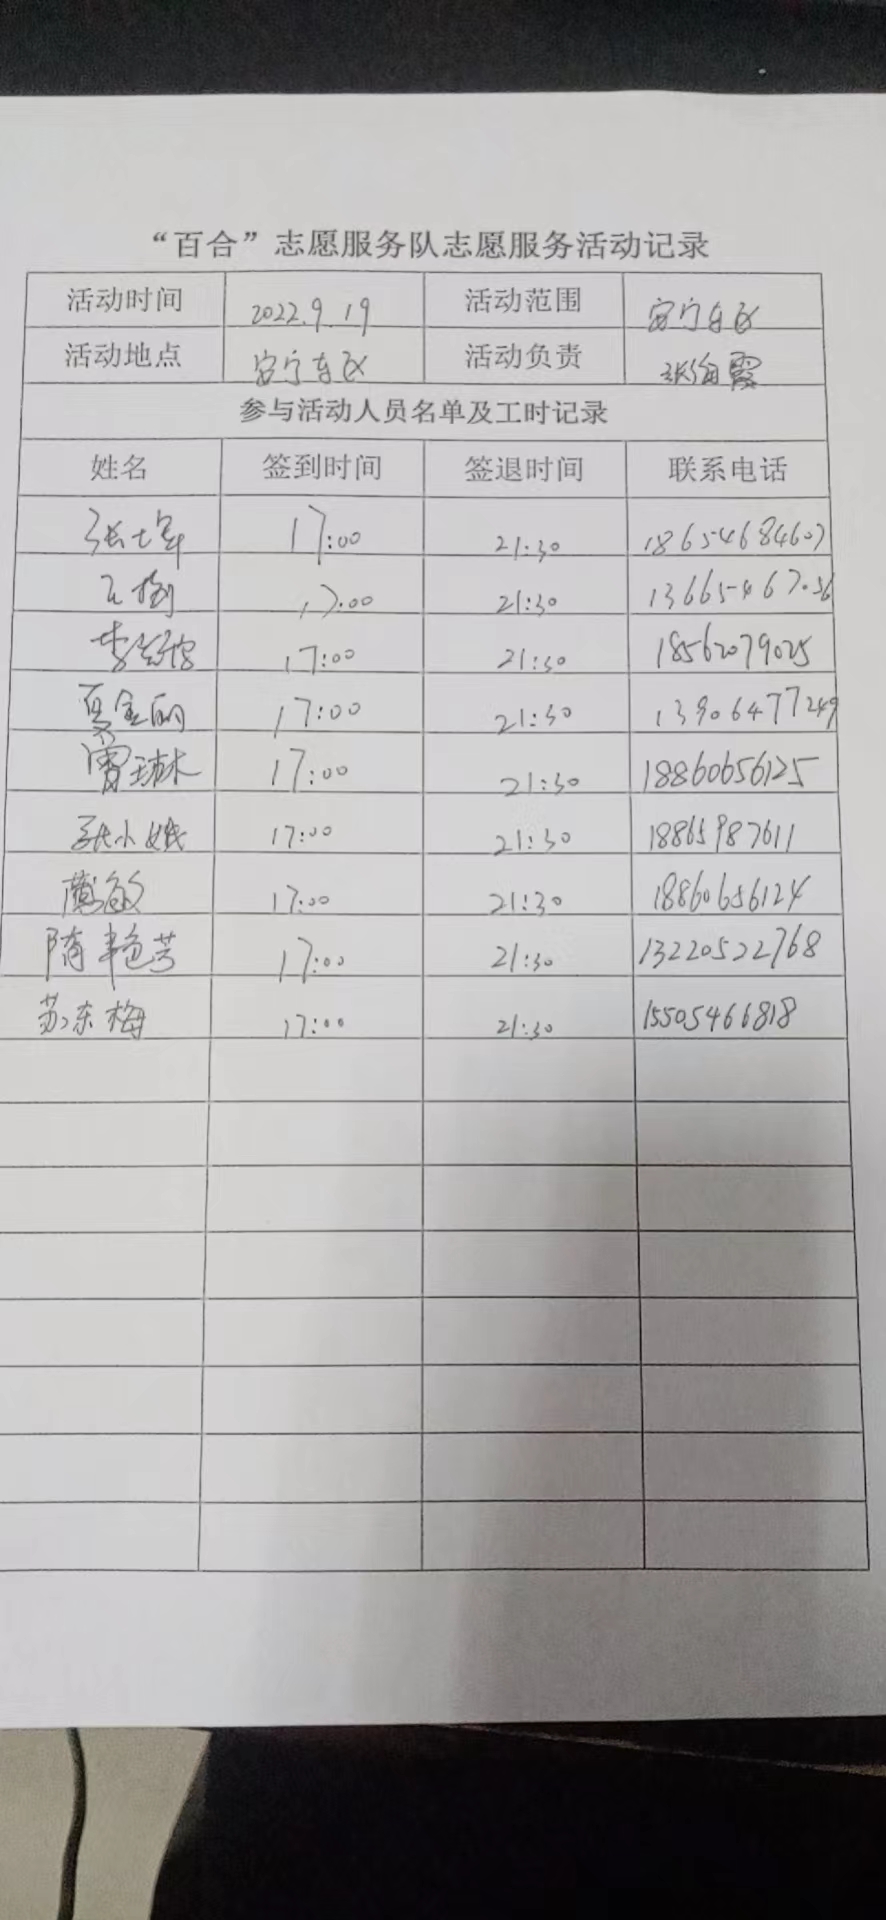 “百合”志愿服务队志愿服务活动记录
活动时间 2022.9.19 活动范围 安宁东区
活动地点 安宁东区 活动负责 张海霞
参与活动人员名单及工时记录
姓名 签到时间 签退时间 联系电话
17:00 21:30 18654684607
17:00 21:30 13665467056
17:00 21:30 18562079025
17:00 21:30 13906477249
曹琳 17:00 21:30 18860656125
张小娥 17:00 21:30 18865987611
17:00 21:30 18860656124
隋艳芳 17:00 21:30 13220522768
苏东梅 17:00 21:30 15505466818